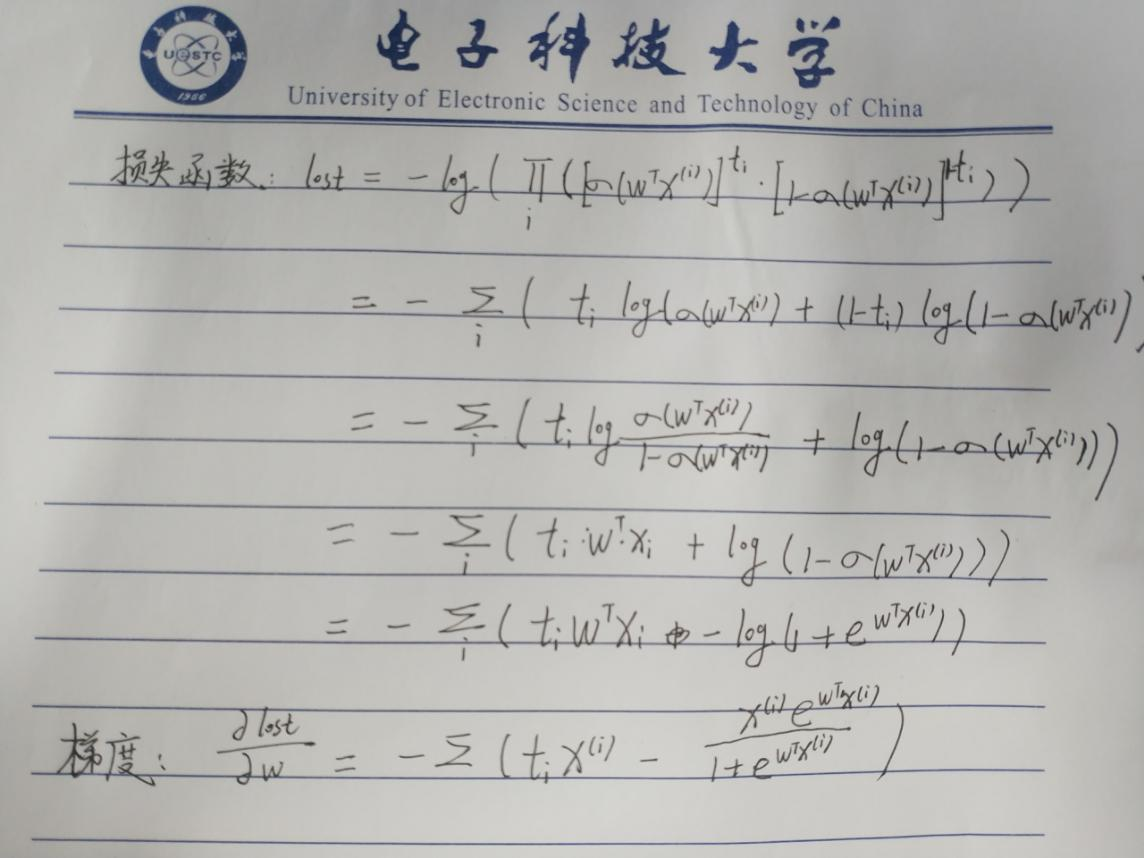 电子科技大学
University of Electronic Science and Technology of China
UESTC
1956
损失函数: lost = - log ( ∏_i ( [σ(w^T x^(i))]^{t_i} · [1-σ(w^T x^(i))]^{1-t_i} ) )
= - Σ_i ( t_i log(σ(w^T x^(i)) + (1-t_i) log(1-σ(w^T x^(i)))
= - Σ_i ( t_i log σ(w^T x^(i)) / 1-σ(w^T x^(i)) + log(1-σ(w^T x^(i))) )
= - Σ_i ( t_i · w^T x_i + log (1-σ(w^T x^(i))) )
= - Σ_i ( t_i w^T x_i - log(1+e^{w^T x^(i)}) )
梯度: ∂lost / ∂w = - Σ ( t_i x^(i) - x^(i) e^{w^T x^(i)} / 1+e^{w^T x^(i)} )